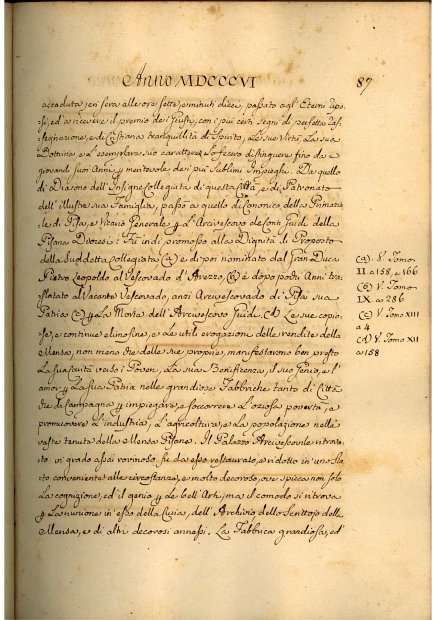 Anno MDCCCVI
87
accaduta jeri sera alle ore sette, e minuti dieci, passato agl' Eterni ripo-
si, ed a ricevere il premio de' Giusti, con i più certi segni di perfetta ras-
segnazione, e de Cristiana tranquillità di Spirito. Le sue Virtù, La sua
Dottrina, e L'esemplare suo carattere Lo fecero distinguere fino da'
giovanili suoi Anni meritevole dei più Sublimi Impieghi. Da quello
di Diacono dell'Insigne Collegiata di questa Città, e di Patronato
dell' illustre sua Famiglia, passò a quello di Canonico della Primazia
le di Pisa, e Vicario Generale L'Arcivescovo de Conti Guidi della
Pisana Diocesi: Fu indi promosso alla Dignità di Proposto
della Suddetta Collegiata (a) e di poi nominato dal Gran Duca
Pietro Leopoldo al Vescovado d'Arezzo, (b) e dopo pochi Anni tra-
slatato al Vacante Vescovado, anzi Arcivescovado di Pisa sua
Patria (c) La Morte dell' Arcivescovo Guidi. (d) Le sue copio-
se, e continue elimosine, e Le utili erogazioni delle rendite della
Mensa, non meno che delle sue proprie, manifestarono ben presto
La sua carità verso i Poveri. La sua Beneficenza, il suo Genio, e l'
amor La sua Patria nelle grandiose Fabbriche tanto di Città
che di Campagna impiegare, e soccorrere L'oziosa povertà, e
promuovere L'industria, L'agricoltura, e La popolazione nelle
vaste tenute della Mensa Pisana. Il Palazzo Arcivescovile ritrova-
to in grado assai rovinoso, fu da esso restaurato, e ridotto in uno sta-
to conveniente alle circostanze, e molto decoroso, ove spicca non solo
La cognizione, ed il genio Le bell'Arti, ma il comodo si ritrova
La riunione in esso della Curia, dell' Archivio dello Scrittojo della
Mensa, e di altri decorosi annessi. La Fabbrica grandiosa, ed
(a) V. Tomo
II a 158, e 166
(b) V. Tomo
IX. a 286
(c) V. Tomo XIII
a 4
(d) V. Tomo XII
a 158